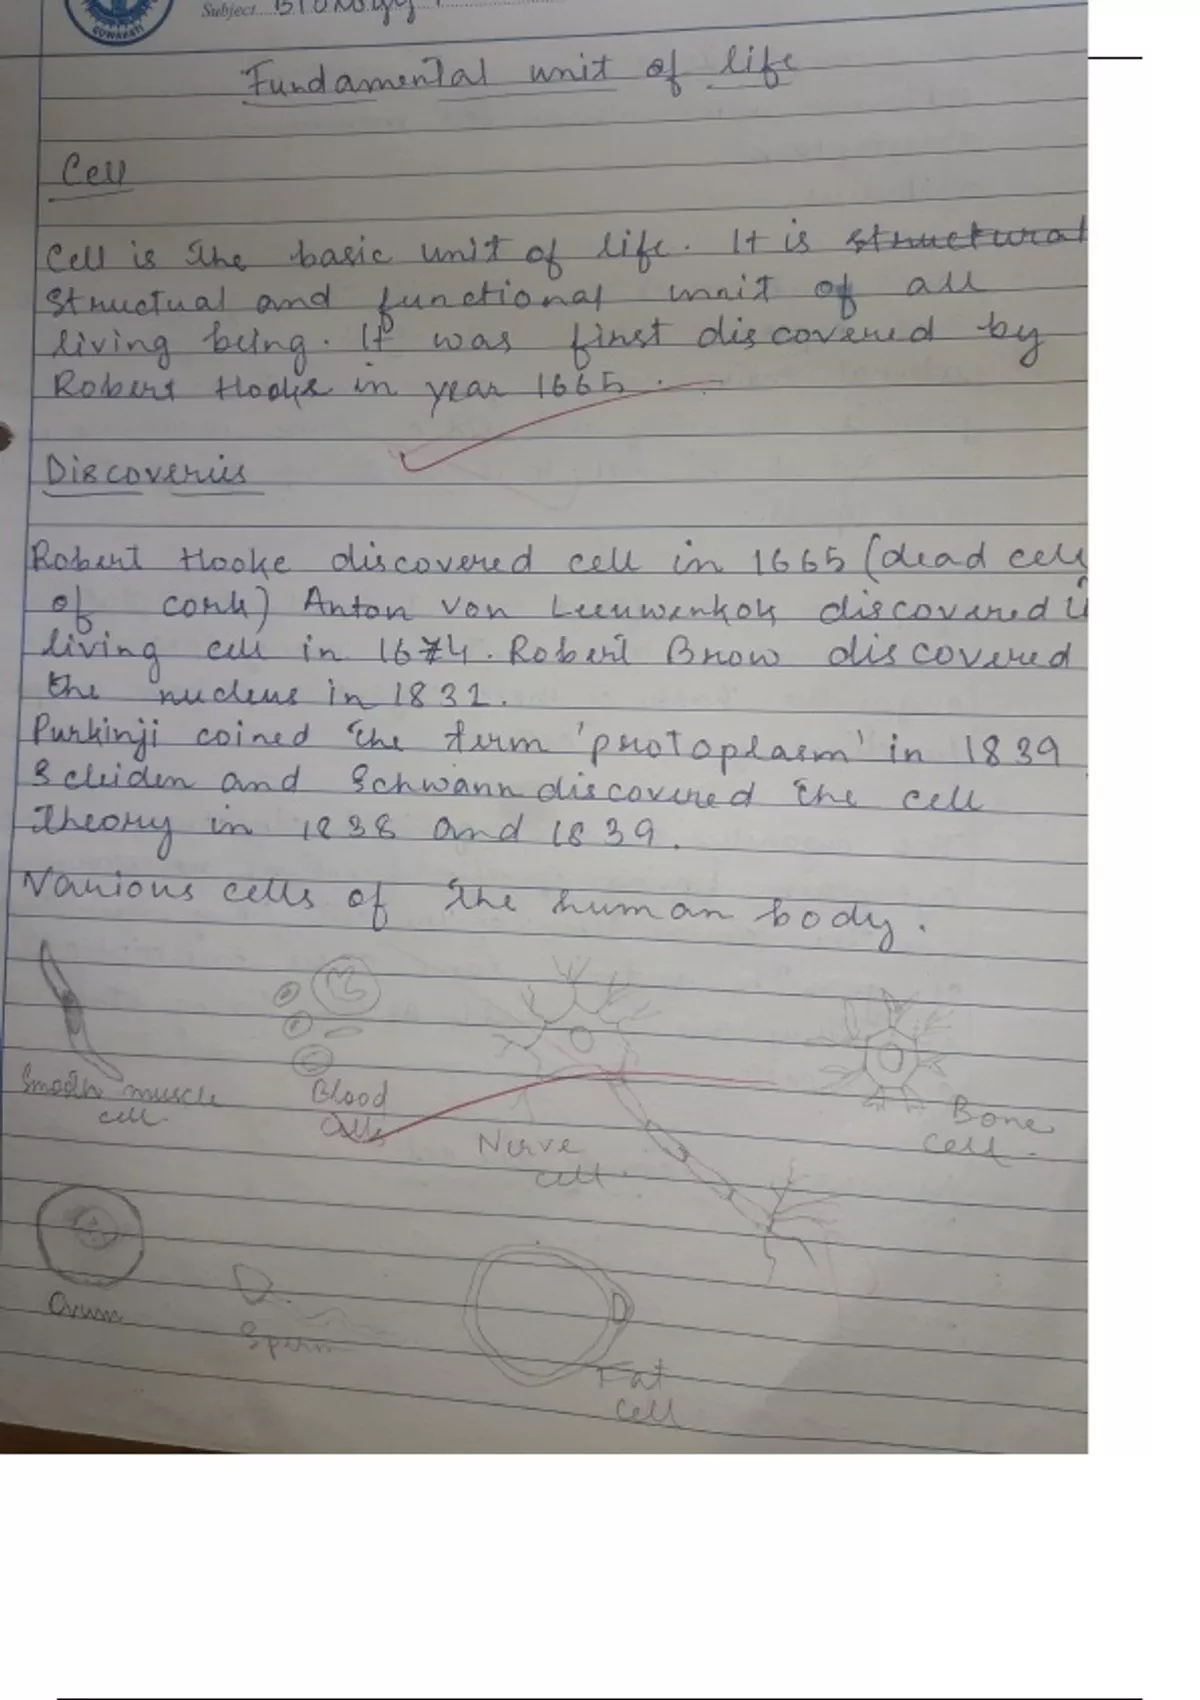 GUWAHATI
Subject Biology
Fundamental unit of life
Cell
Cell is the basic unit of life. It is structural
structual and functional unit of all
living being. It was first discovered by
Robert Hooke in year 1665.
Discoveries
Robert Hooke discovered cell in 1665 (dead cell
of cork) Anton von Leeuwenkok discovered
living cell in 1674. Robert Brow discovered
the nucleus in 1831.
Purkinji coined the term 'protoplasm' in 1839
Scleiden and Schwann discovered the cell
theory in 1838 and 1839.
Various cells of the human body.
Smooth muscle
cell
Blood
cells
Nerve
cell
Bone
cell
Ovum
Sperm
Fat
cell